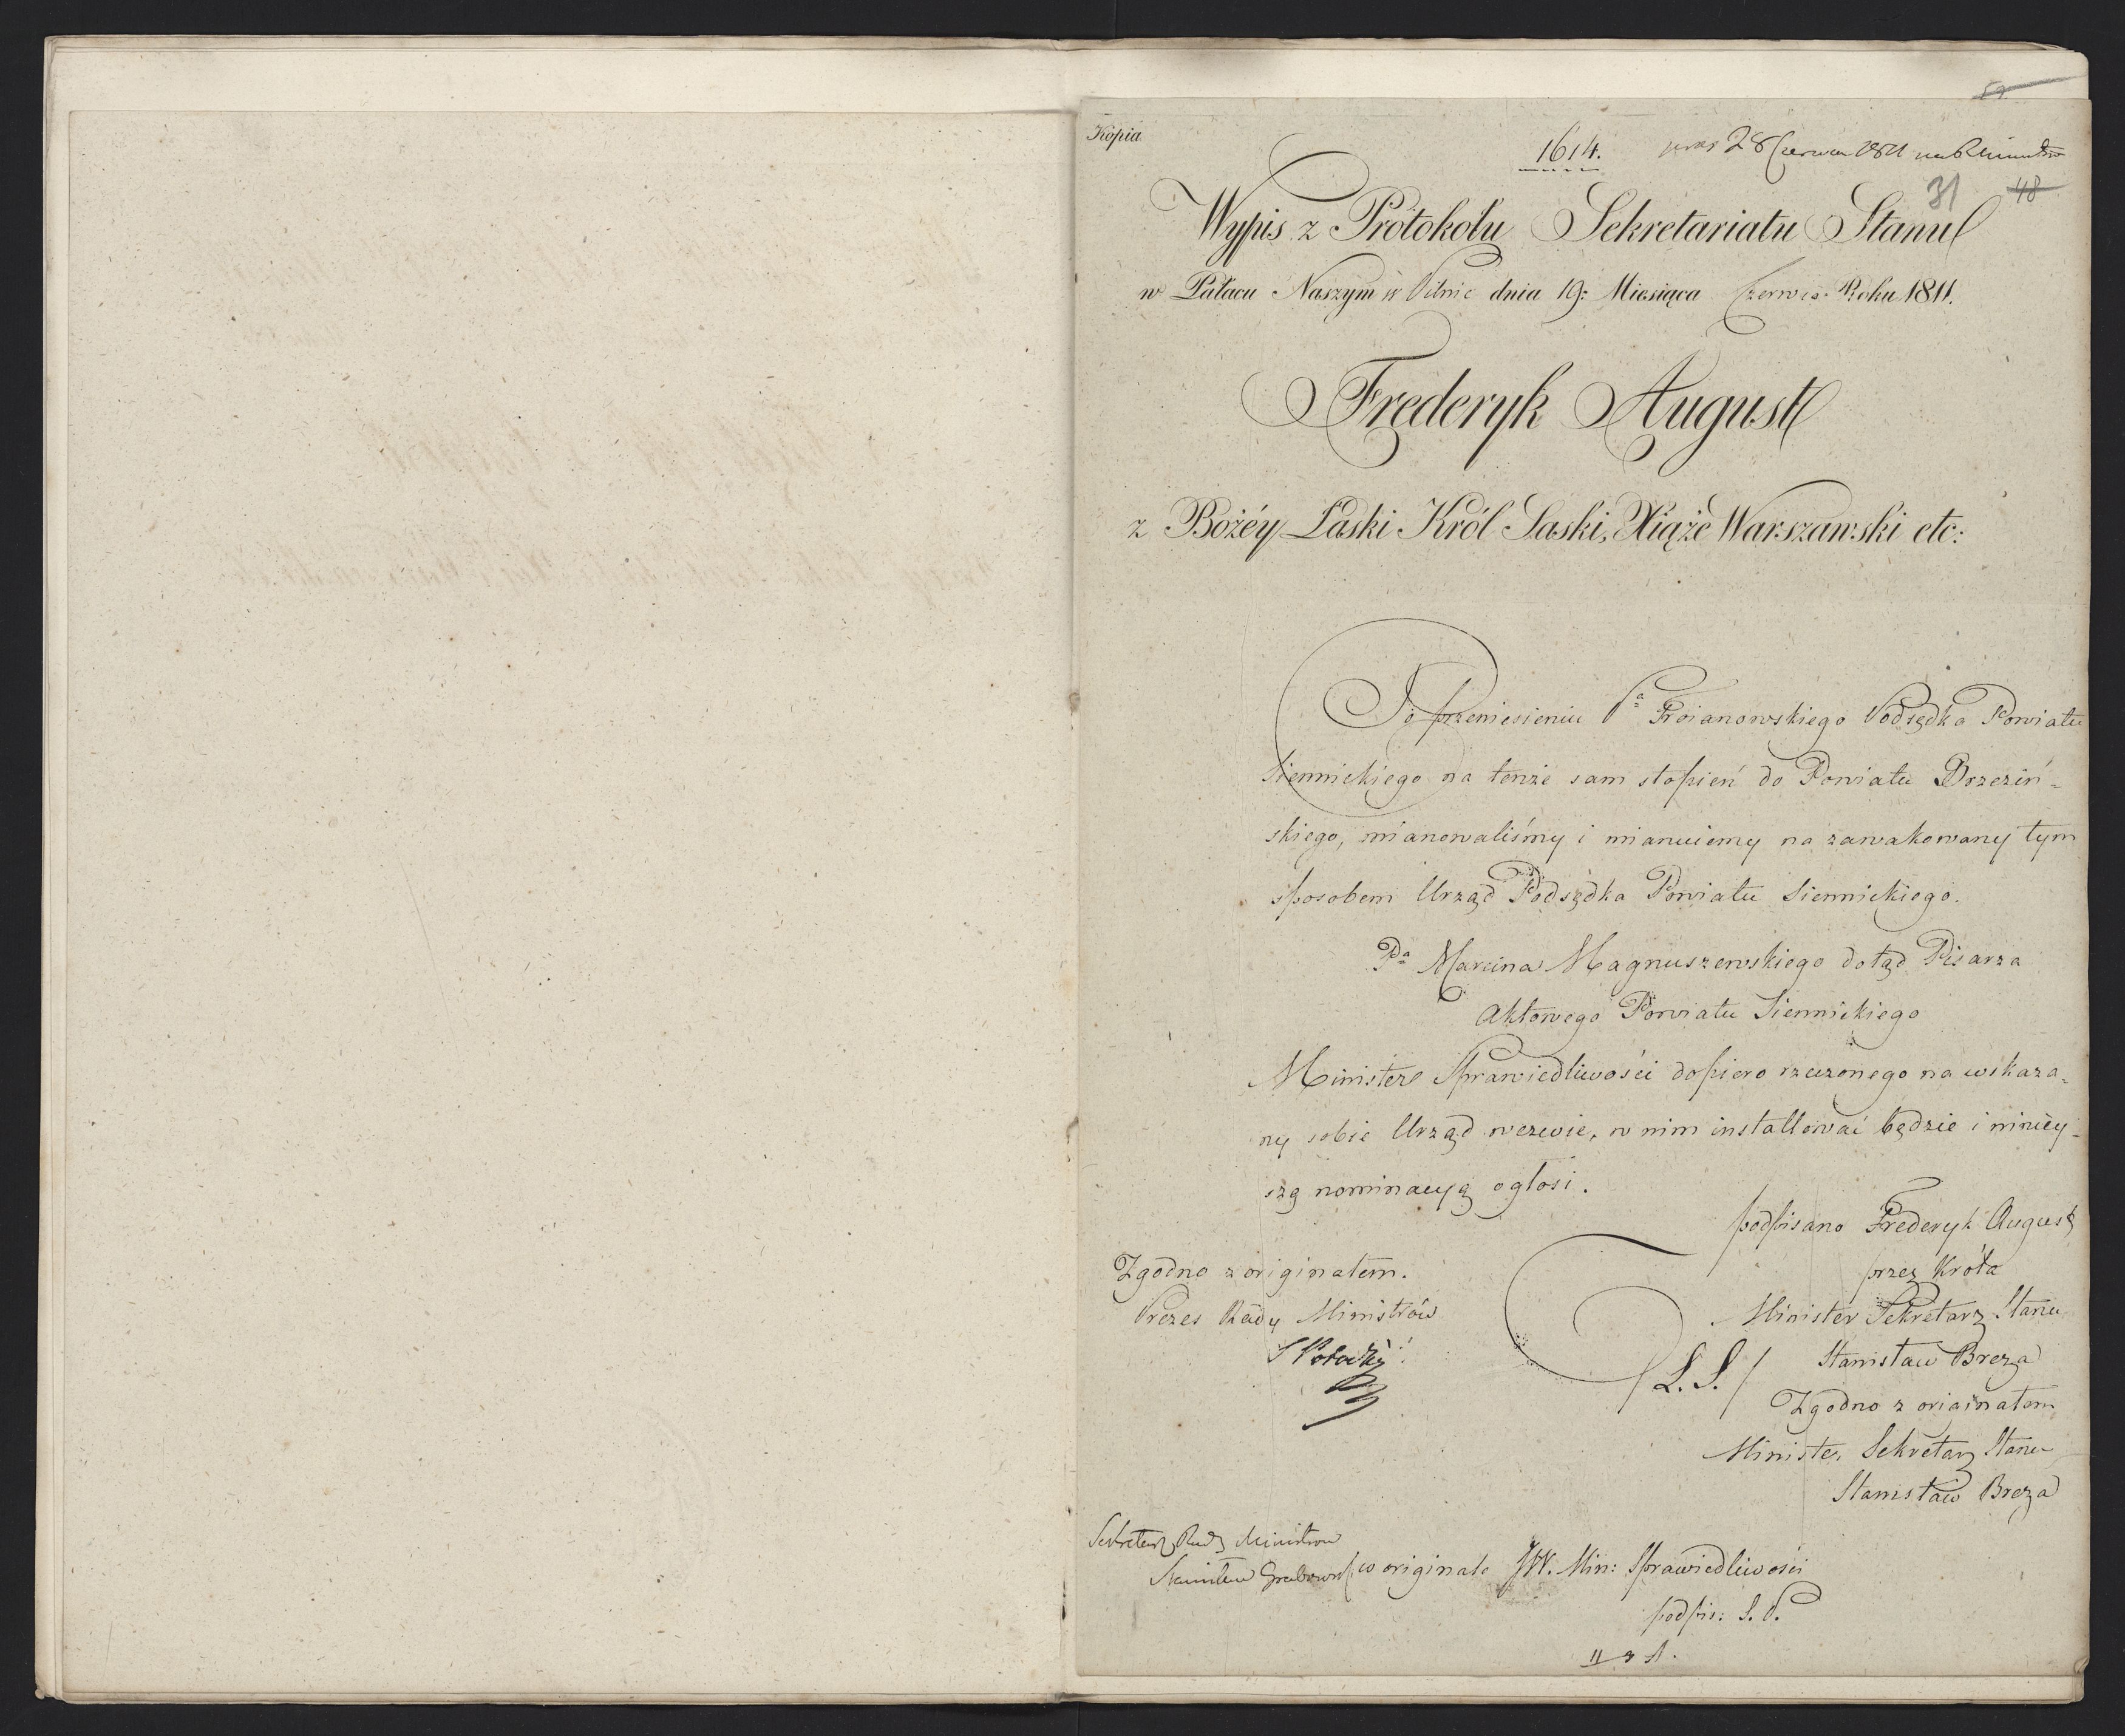 59
Kopia
1614. pras 28 Czerwca 1811 na R Ministrów
31 48
Wypis z Protokołu Sekretariatu Stanu
w Pałacu Naszym w Pilnic dnia 19: Miesiąca Czerwca Roku 1811.
Frederyk August
z Bożéy Łaski Król Saski, Xiąże Warszawski etc:
Po przeniesieniu Pª Troianowskiego Podsędka Powiatu
Siennickiego na tenże sam stopień do Powiatu Brzeziń-
skiego, mianowaliśmy i mianuiemy na zawakowany tym
sposobem Urząd Podsędka Powiatu Siennickiego.
Pª Marcina Magnuszewskiego dotąd Pisarza
Aktowego Powiatu Siennickiego
Minister Sprawiedliwości dopiero rzeczonego na wskaza-
ny sobie Urząd wezwie, w nim installować będzie i ninièy-
szą nominacyą ogłosi.
podpisano Frederyk August
przez Króla
Zgodno z originałem.
Prezes Rady Ministrów
S Potocki
Minister Sekretarz Stanu
Stanisław Breza
/L.S./
Zgodno z originałem
Minister Sekretarz Stanu
Stanisław Breza
Sekretarz Rady Ministrow
Stanisław Grabowski
w originale JW. Min: Sprawiedliwości
podpis: S. P.